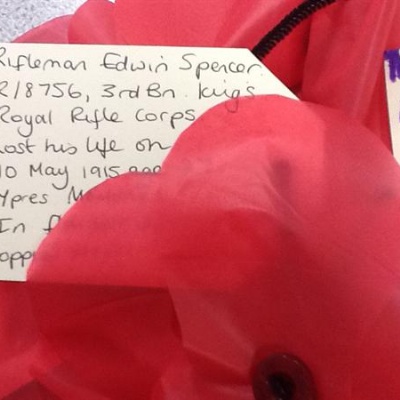 Rifleman Edwin Spencer
R/8756, 3rd Bn. King's
Royal Rifle Corps
Lost his life on
10 May 1915
Ypres
In